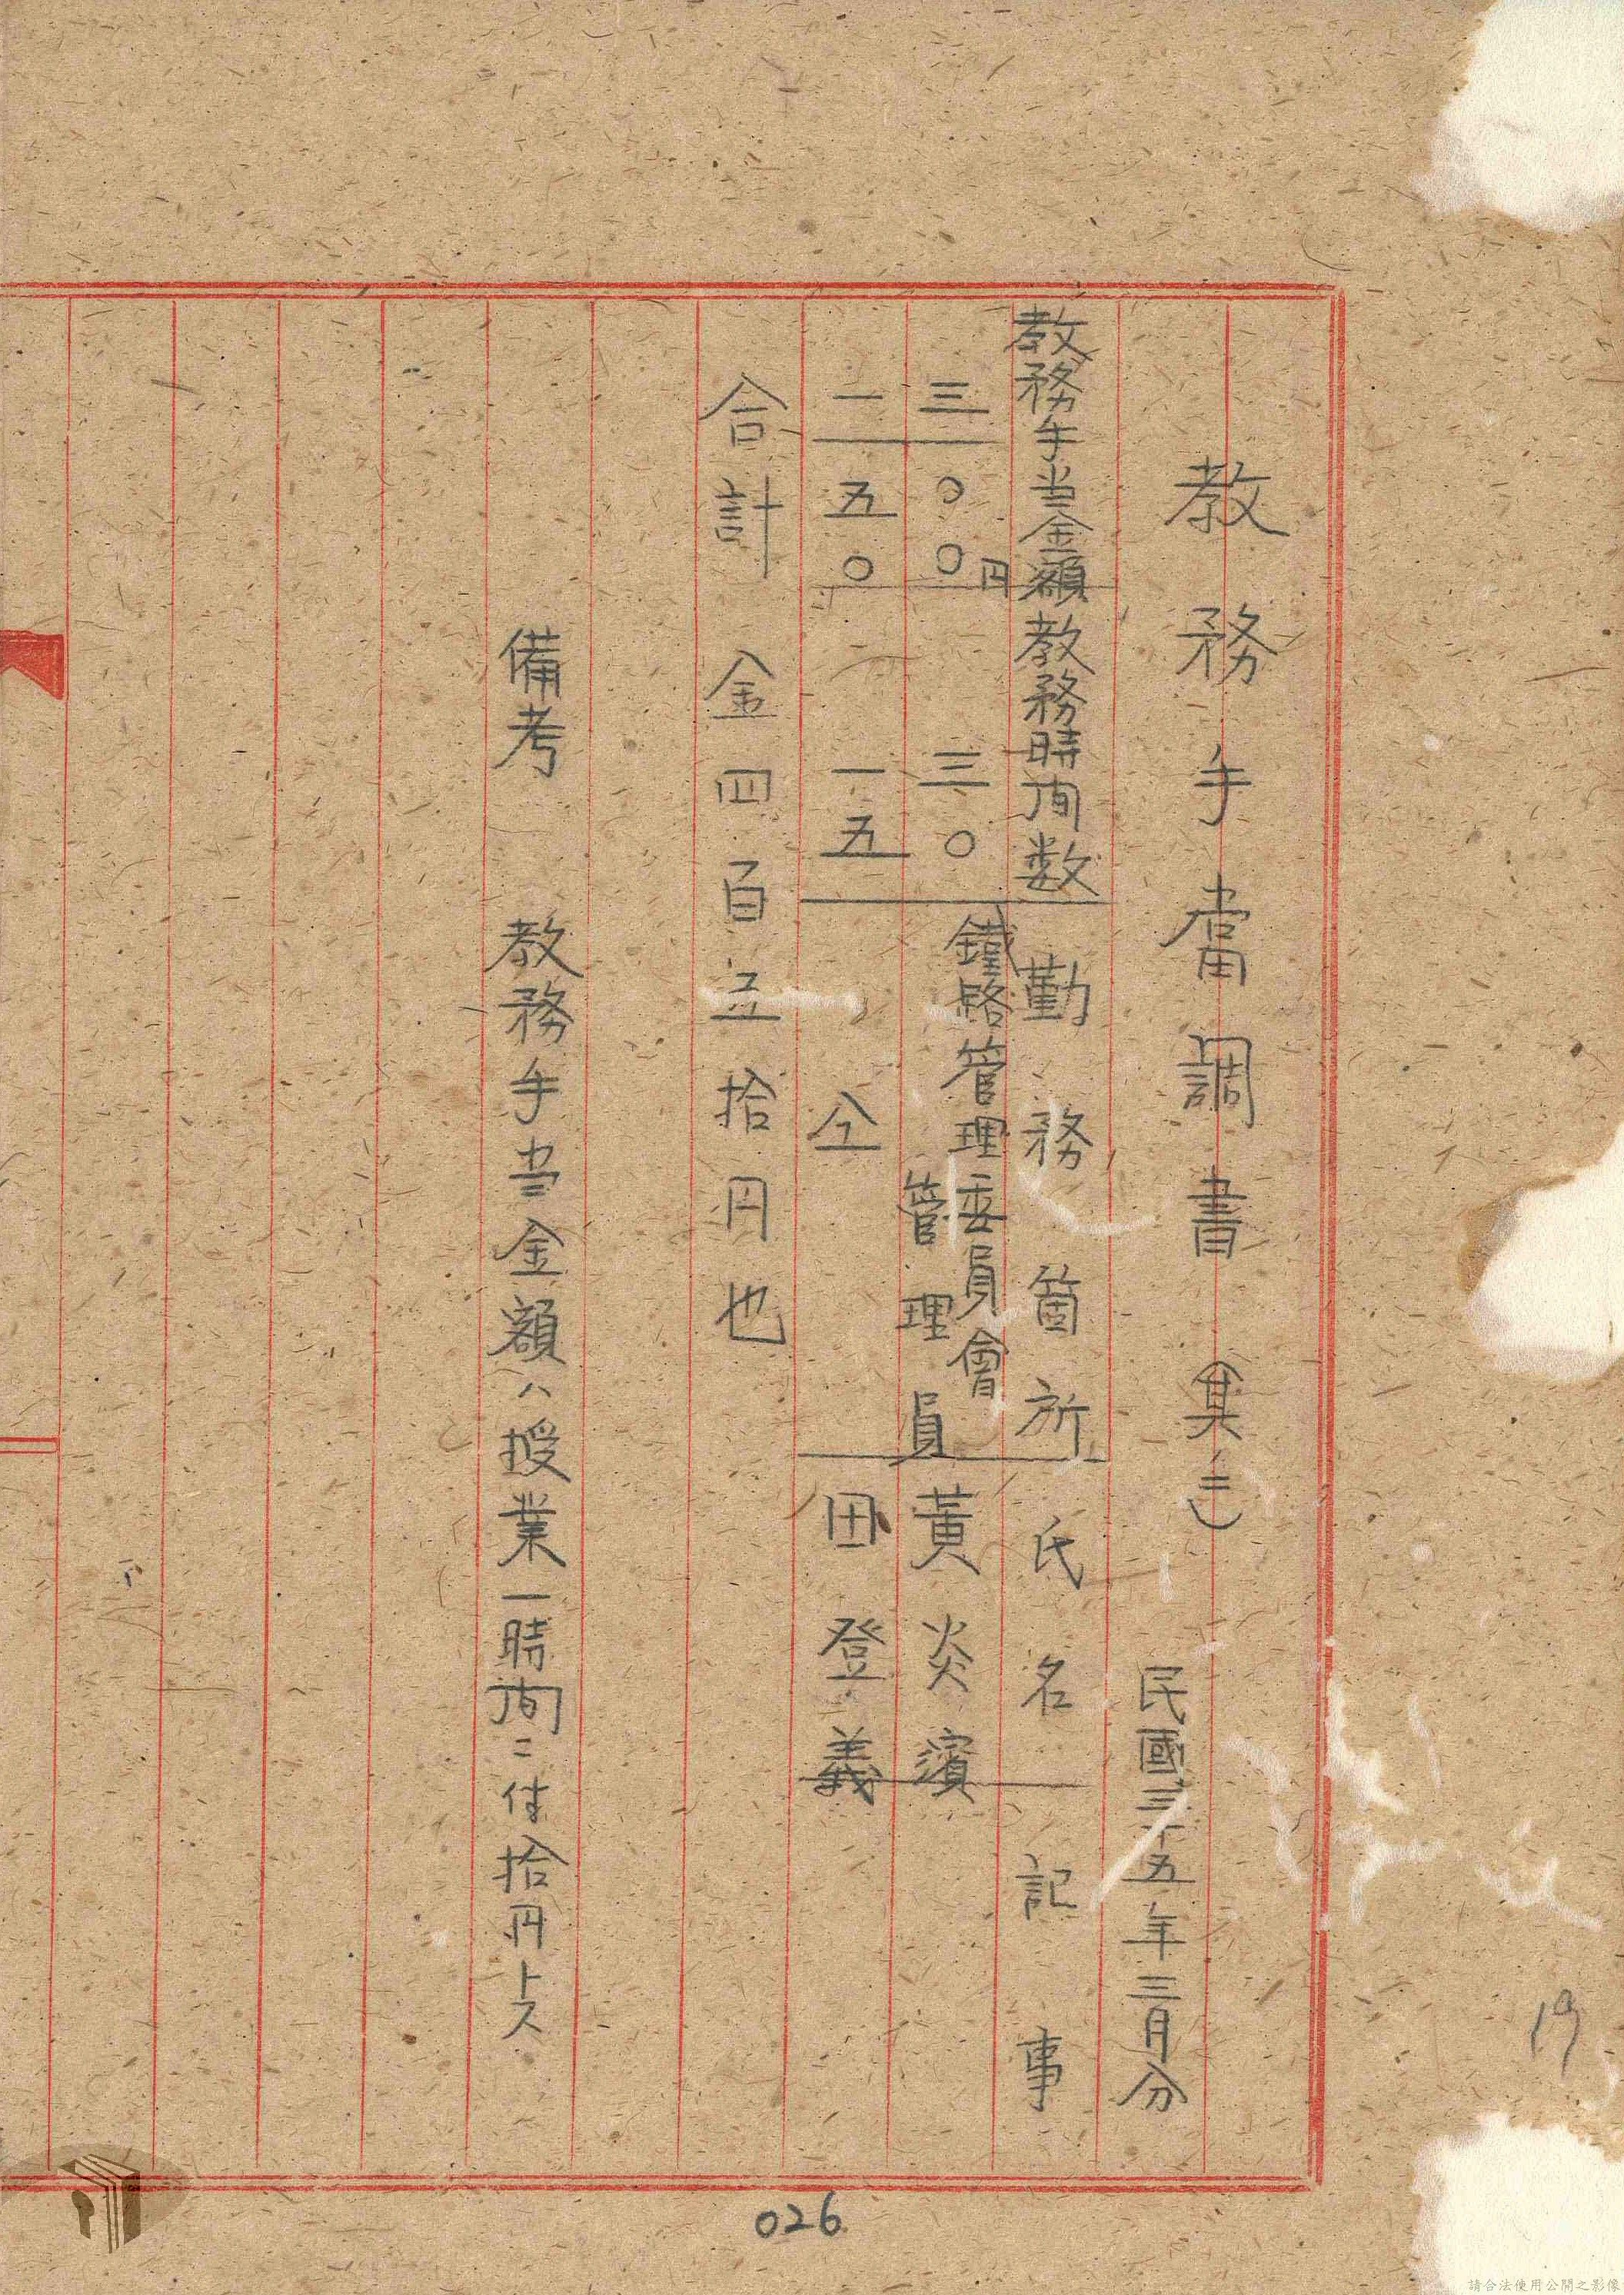 教務手當調書（其二）
民國三十五年三月分
教務手当金額 教務時间数 勤務箇所 氏名 記事
三〇〇円 三〇 鐵路管理委員會管理員 黃炎濱
一五〇 一五 仝 田登義
合計 金四百五拾円也
備考 教務手当金額ハ授業一時间ニ付拾円トス
19
026
請合法使用公開之影像